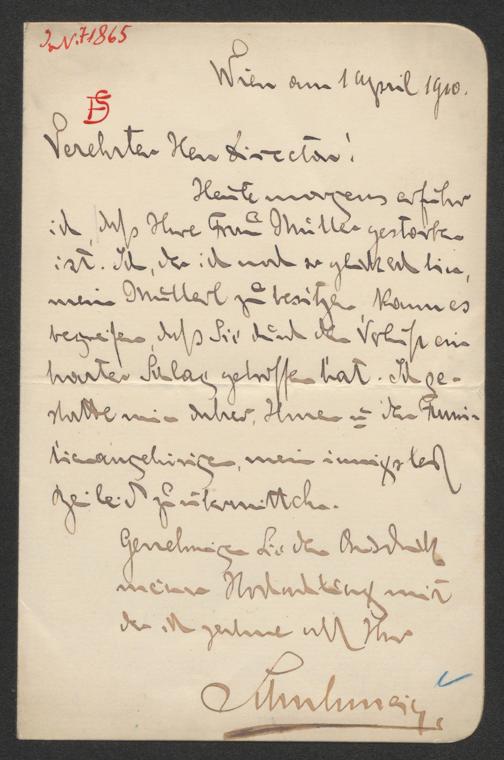 J.N. 71865
Wien am 1 April 1910.
Verehrter Herr Director!
Heute morgens erfuhr
ich, daß Ihre Frau Mutter gestorben
ist. Ich, der ich noch so glücklich bin,
mein Mutterl zu besitzen kann es
begreifen, daß Sie durch den Verlust ein
harter Schlag getroffen hat. Ich ge-
statte mir daher, Ihnen u den Fami-
lienangehörigen, mein innigstes
Beileid zu übermitteln.
Genehmigen Sie den Ausdruck
meiner Hochachtung mit
der ich zeichne als Ihr